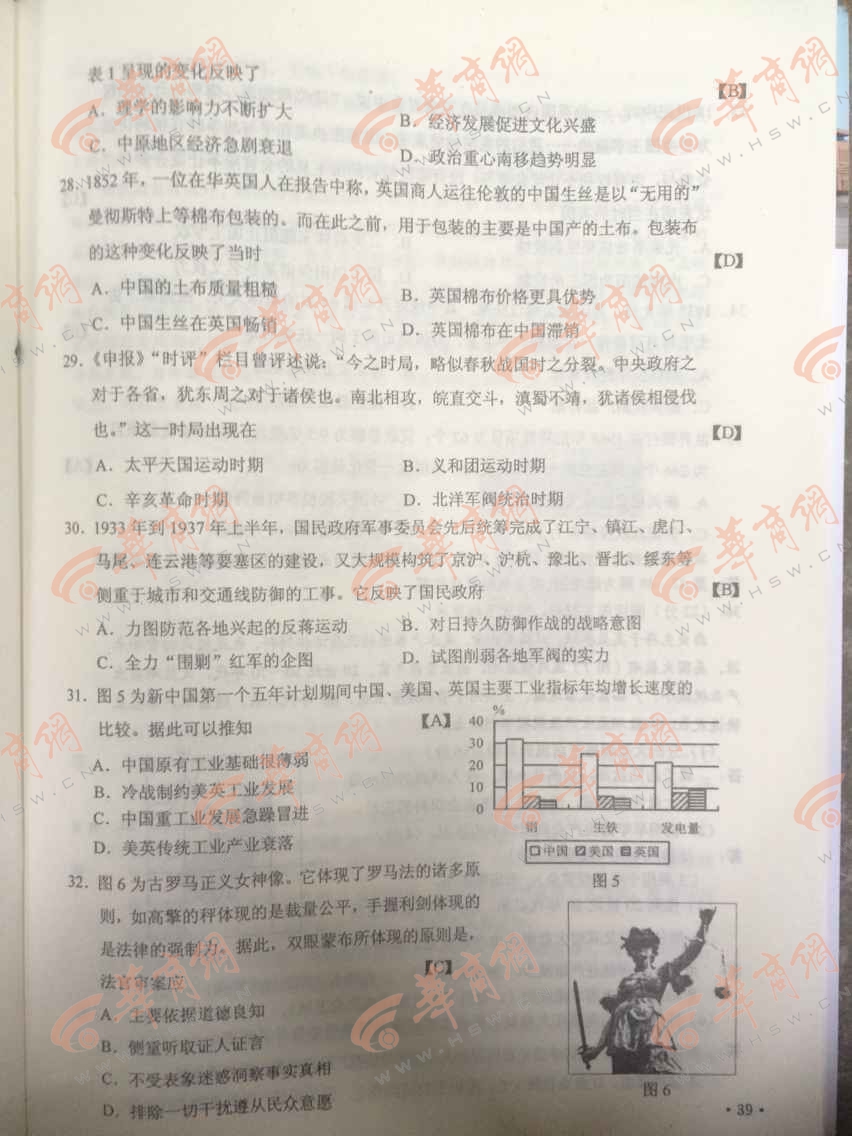 表1呈现的变化反映了
【B】
A．理学的影响力不断扩大
B．经济发展促进文化兴盛
C．中原地区经济急剧衰退
D．政治重心南移趋势明显
28．1852年，一位在华英国人在报告中称，英国商人运往伦敦的中国生丝是以“无用的”
曼彻斯特上等棉布包装的。而在此之前，用于包装的主要是中国产的土布。包装布
的这种变化反映了当时
【D】
A．中国的土布质量粗糙
B．英国棉布价格更具优势
C．中国生丝在英国畅销
D．英国棉布在中国滞销
29．《申报》“时评”栏目曾评述说：“今之时局，略似春秋战国时之分裂。中央政府之
对于各省，犹东周之对于诸侯也。南北相攻，皖直交斗，滇蜀不靖，犹诸侯相侵伐
也。”这一时局出现在
【D】
A．太平天国运动时期
B．义和团运动时期
C．辛亥革命时期
D．北洋军阀统治时期
30．1933年到1937年上半年，国民政府军事委员会先后统筹完成了江宁、镇江、虎门、
马尾、连云港等要塞区的建设，又大规模构筑了京沪、沪杭、豫北、晋北、绥东等
侧重于城市和交通线防御的工事。它反映了国民政府
【B】
A．力图防范各地兴起的反蒋运动
B．对日持久防御作战的战略意图
C．全力“围剿”红军的企图
D．试图削弱各地军阀的实力
31．图5为新中国第一个五年计划期间中国、美国、英国主要工业指标年均增长速度的
比较。据此可以推知
【A】
A．中国原有工业基础很薄弱
B．冷战制约美英工业发展
C．中国重工业发展急躁冒进
D．美英传统工业产业衰落
%
40
30
20
10
0
钢 生铁 发电量
中国 美国 英国
图5
32．图6为古罗马正义女神像。它体现了罗马法的诸多原
则，如高擎的秤体现的是裁量公平，手握利剑体现的
是法律的强制力。据此，双眼蒙布所体现的原则是，
法官审案应
【C】
A．主要依据道德良知
B．侧重听取证人证言
C．不受表象迷惑洞察事实真相
D．排除一切干扰遵从民众意愿
图6
·39·
華商網
WWW.HSW.CN